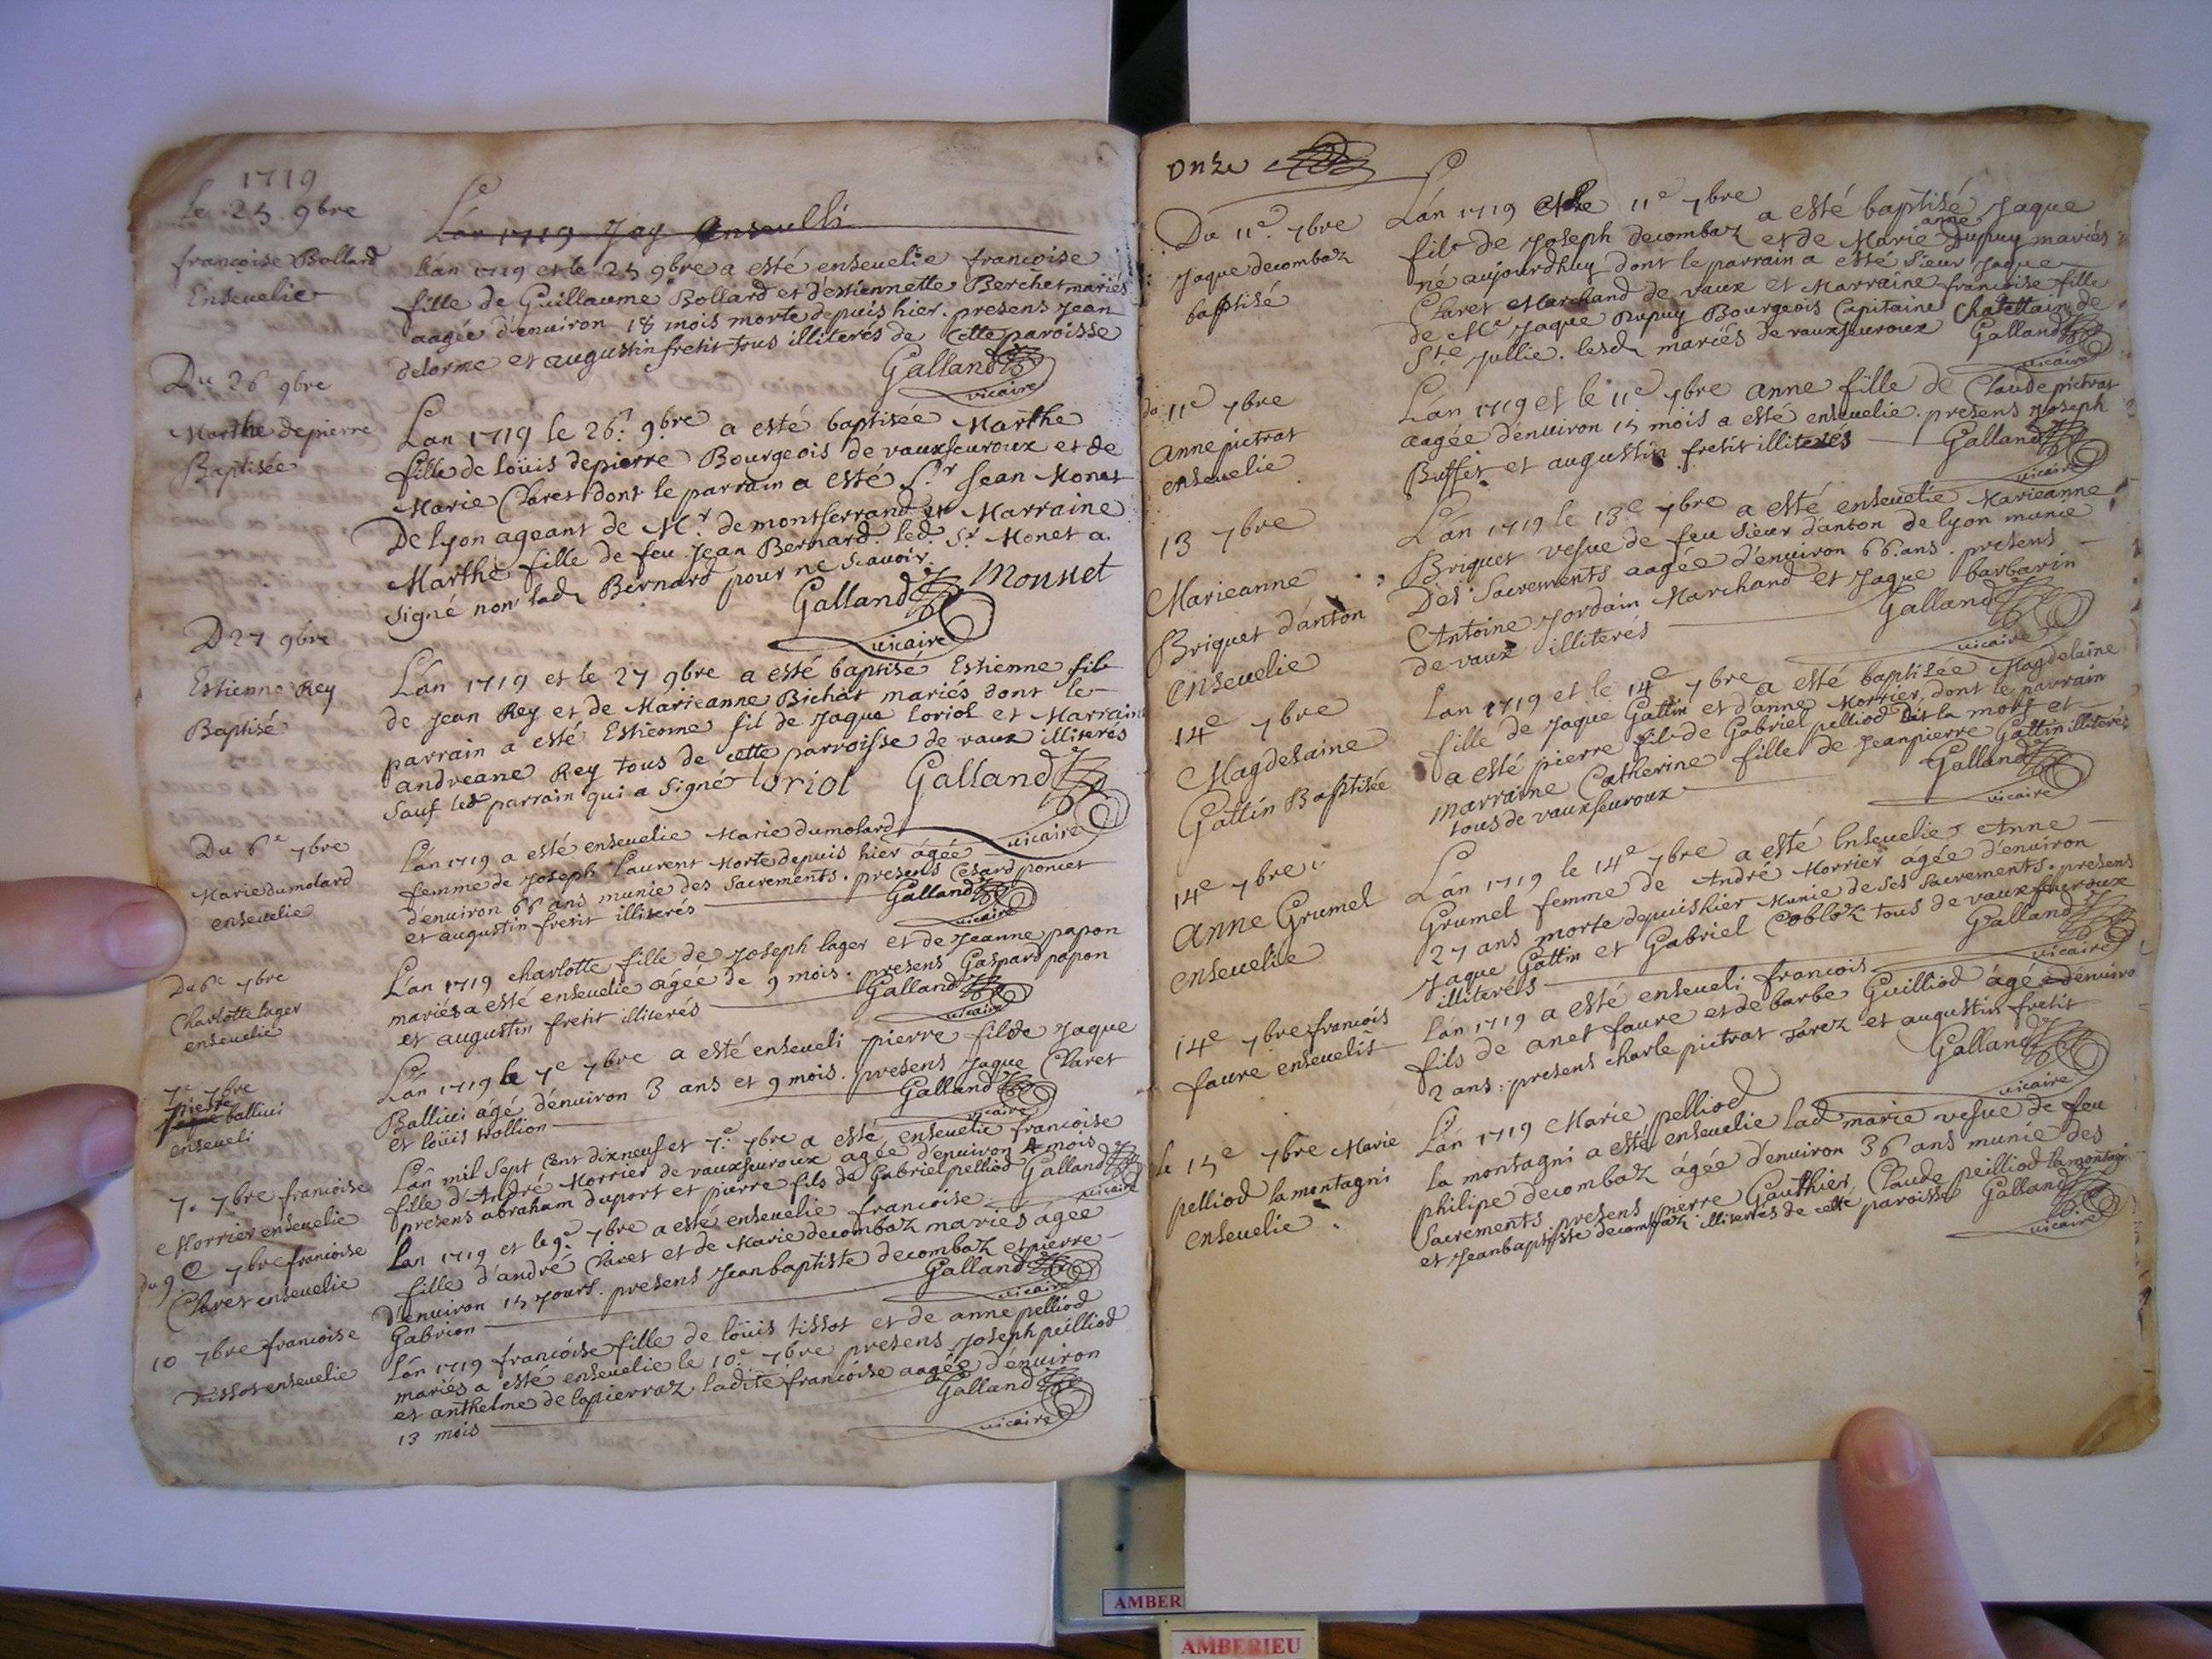 1719
Le 25. 9bre
françoise Bollard
Enseuelie
L'an 1719 Jay Enseuelli
L'an 1719 et le 25 9bre a esté enseuelie francoise
fille de Guillaume Bollard et d'estiennette Berchet mariés
aagée d'enuiron 18 mois morte depuis hier. presens Jean
delorme et augustin fretit tous illiterés de Cette paroisse
Galland
vicaire
Du 26 9bre
Marthe depierre
Baptisée
L'an 1719 le 26e. 9bre a esté baptisée Marthe
fille de loüis depierre Bourgeois de vauxfeuroux et de
Marie Claret dont le parrain a esté Sr. Jean Monet
De lyon ageant de Mr de montferrand et Marraine
Marthe fille de feu Jean Bernard. led. Sr Monet a
signé non lad Bernard pour ne scauoir.
Galland Monnet
vicaire
D 27 9bre
Estienne Rey
Baptisé
L'an 1719 et le 27 9bre a esté baptisé Estienne fils
de Jean Rey et de Marieanne Bichat mariés dont le
parrain a esté Estienne fil de Jaque loriol et Marraine
andreane Rey tous de cette parroisse de vaux illiterés
sauf led parrain qui a signé loriol Galland
vicaire
Du 6e 7bre
Marie dumolard
enseuelie
L'an 1719 a esté enseuelie Marie dumolard
femme de Joseph Laurent Morte depuis hier âgée
d'enuiron 66 ans munie des Sacrements. presens Cesard poncet
et augustin fretit illiterés
Galland
vicaire
Du 6e 7bre
Charlotte lager
enseuelie
L'an 1719 charlotte fille de Joseph lager et de Jeanne papon
mariés a esté enseuelie agée de 9 mois. presens Gaspard papon
et augustin fretit illiterés
Galland
vicaire
7e 7bre
pierre
ballini
enseueli
L'an 1719 le 7e 7bre a esté enseueli pierre fils de Jaque
Ballini âgé d'enuiron 3 ans et 9 mois. presens Jaque Claret
et loüis Wollion
Galland
vicaire
7. 7bre francoise
Morrier enseuelie
L'an mil Sept Cens dix neuf et 7e. 7bre a esté enseuelie francoise
fille d'André Morrier de vauxfeuroux agée d'enuiron 4 mois
presens abraham duport et pierre fils de Gabriel pelliod
Galland
vicaire
du 9e 7bre francoise
Claret enseuelie
Lan 1719 et le 9e 7bre a esté enseuelie francoise
fille d'andré Claret et de Marie decombaz mariés âgée
d'enuiron 15 jours. presens Jeanbaptiste decombaz et pierre
Gabrion
Galland
vicaire
10 7bre francoise
Tissot enseuelie
L'an 1719 francoise fille de loüis tissot et de anne pelliod
mariés a esté enseuelie le 10e 7bre presens Joseph peilliod
et anthelme de lapierraz ladite francoise aagée d'enuiron
13 mois
Galland
vicaire
Onze
Du 11e. 7bre
Jaque decombaz
baptisé
L'an 1719 et le 11e 7bre a esté baptisé Jaque
fils de Joseph decombaz et de Marie anne Dupuy mariés
né aujourdhuy dont le parrain a esté Sieur Jaque
Claret Marchand de vaux et Marraine francoise fille
de Me Jaque Dupuy Bourgeois Capitaine Chatellain de
Ste Jullie. lesd mariés de vauxfeuroux
Galland
vicaire
du 11e 7bre
anne pictrat
enseuelie
L'an 1719 et le 11e 7bre anne fille de Claude pictrat
aagée d'enuiron 15 mois a esté enseuelie. presens Joseph
Buffet et augustin fretit illiterés
Galland
vicaire
13 7bre
Marieanne
Briguet d'anton
enseuelie
L'an 1719 le 13e 7bre a esté enseuelie Marieanne
Briguet vesue de feu Sieur d'anton de lyon munie
Des Sacrements aagée d'enuiron 66. ans. presens
Antoine Jordain Marchand et Jaque barbarin
de vaux illiterés
Galland
vicaire
14e 7bre
Magdelaine
Gattin Baptisée
L'an 1719 et le 14e 7bre a esté baptisée Magdelaine
fille de Jaque Gattin et d'anne Morrier, dont le parrain
a esté pierre fils de Gabriel pelliod dit la mort et
marraine Catherine fille de Jeanpierre Gattin illiterés
tous de vauxfeuroux
Galland
vicaire
14e 7bre
Anne Grumel
enseuelie
L'an 1719 le 14e 7bre a esté Enseuelie Anne
Grumel femme de André Morrier âgée d'enuiron
27 ans morte depuis hier Munie de ses sacrements. presens
Jaque Gattin et Gabriel Cobloz tous de vauxfeuroux
illiterés
Galland
vicaire
14e 7bre francois
faure enseuelit
L'an 1719 a esté enseueli francois
fils de anet faure et de barbe Guilliod âgé d'enuiro
2 ans: presens charle pictrat Farez et augustin fretit
Galland
vicaire
le 15e 7bre Marie
pelliod la montagni
enseuelie.
L'an 1719 Marie pelliod
la montagni a esté enseuelie lad marie vesue de feu
philipe decombaz âgée d'enuiron 36 ans munie des
Sacrements. presens pierre Gauthier, Claude peilliod la montagni
et Jeanbaptiste decombaz illiterés de cette paroisse
Galland
vicaire
AMBER
AMBERIEU